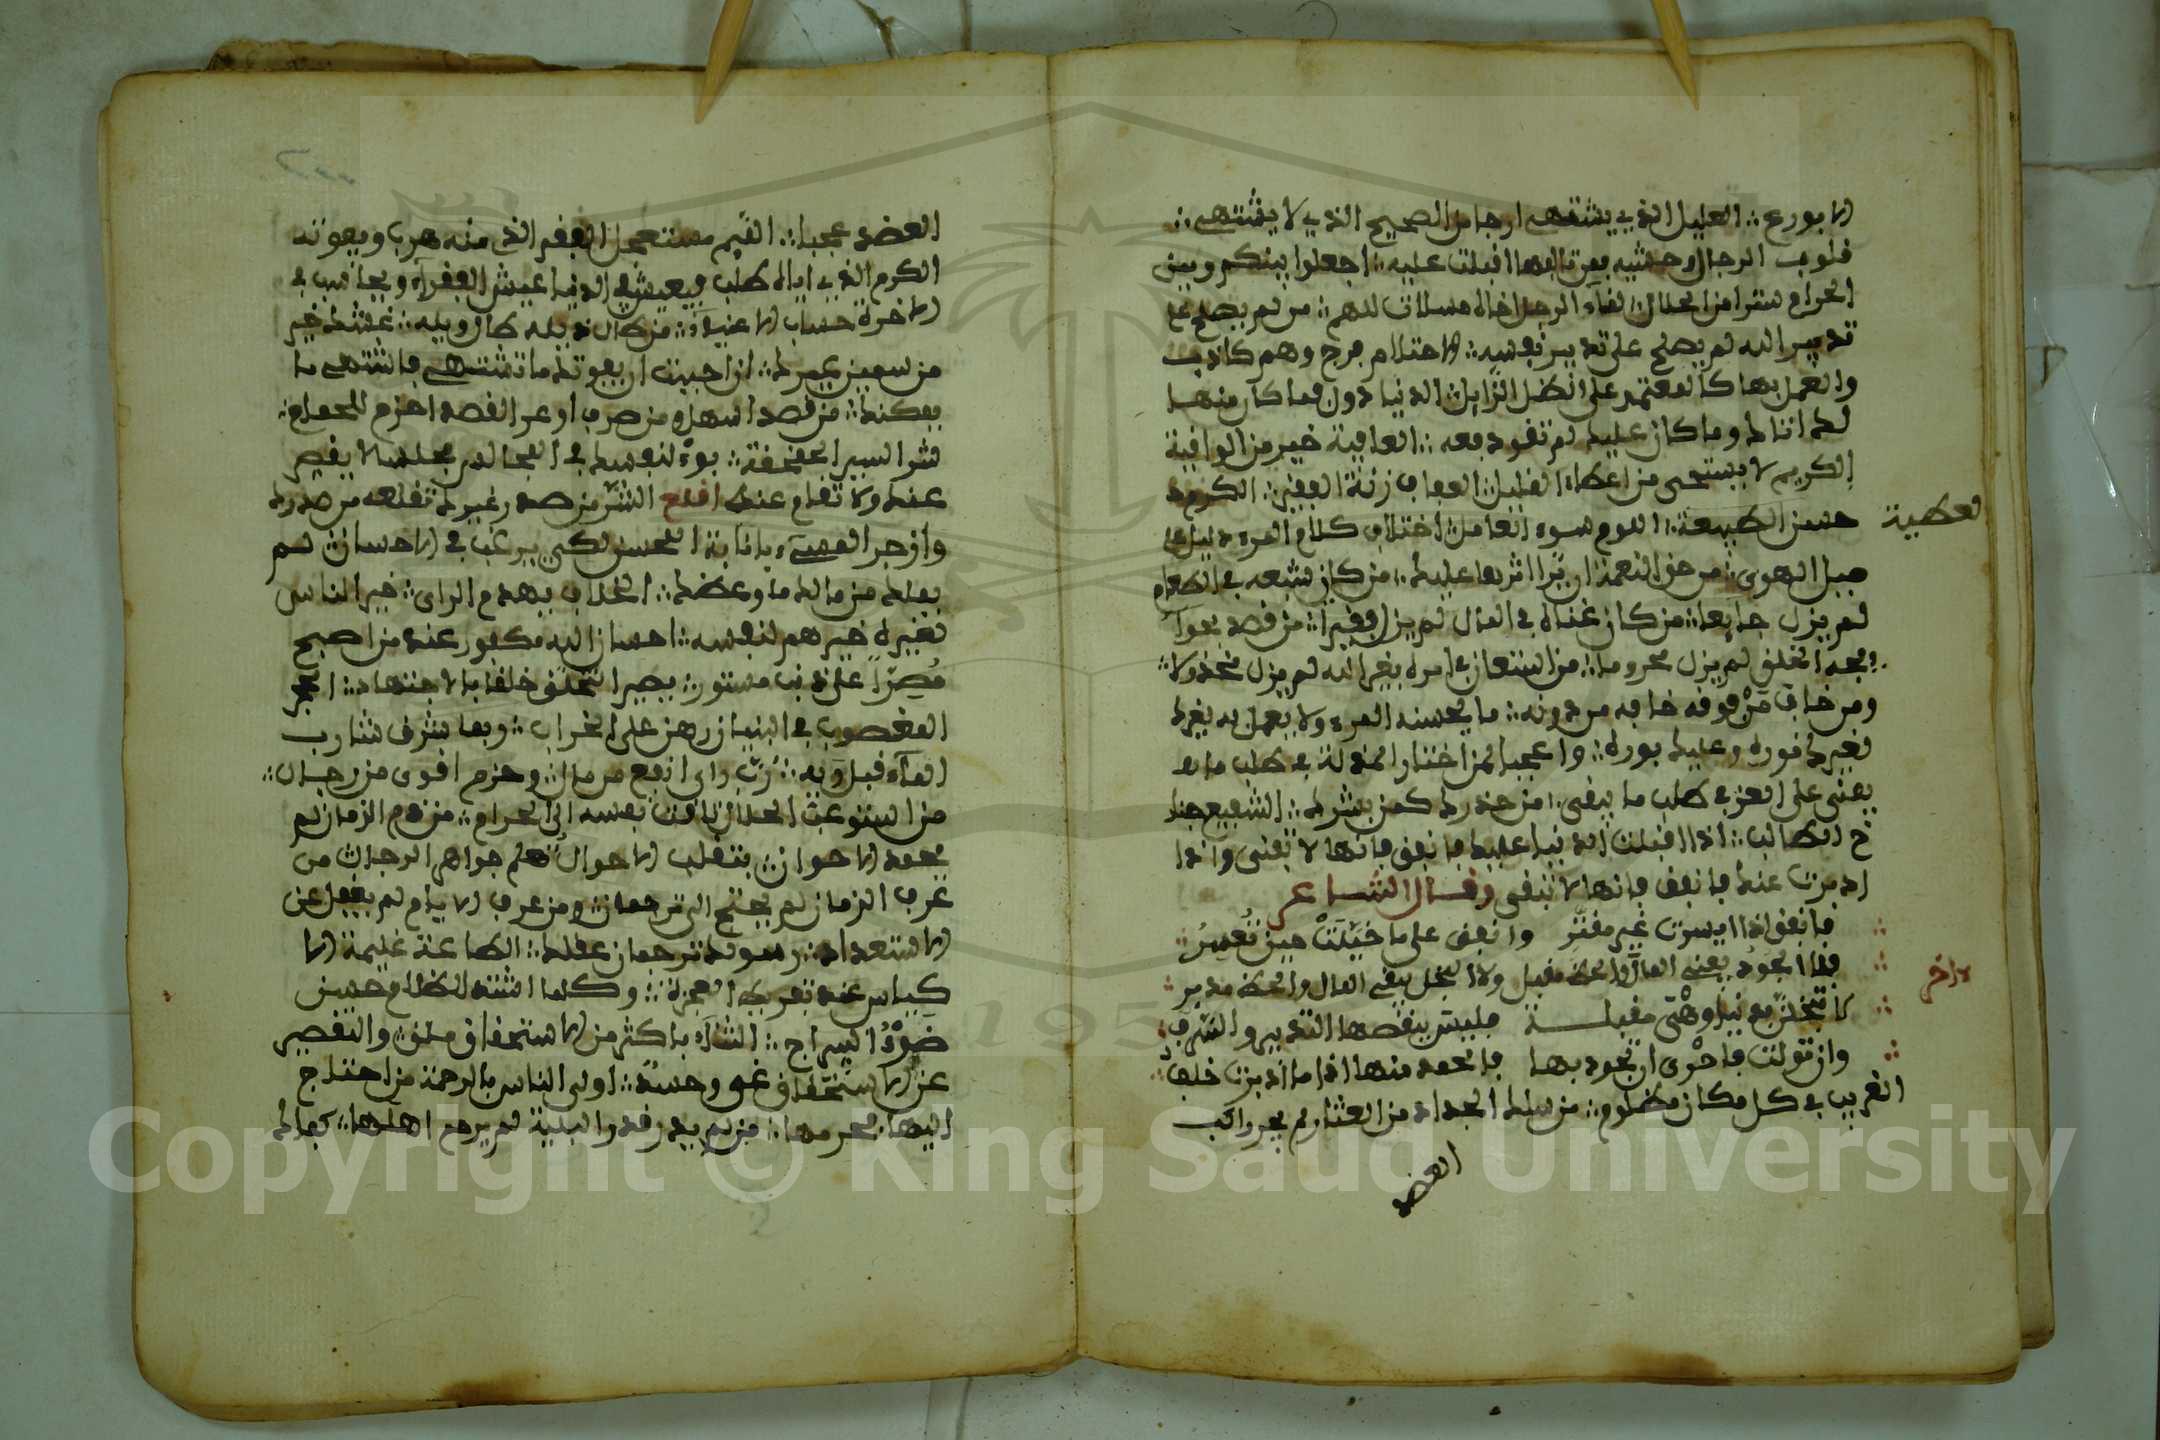 الا بورع ∴ العليل الذي يشتهي ارجا من الصحيح الذي لا يشتهي ∴
قلوب الرجال وحشية فمن تالفها اقبلت عليه ∴ اجعلوا بينكم وبين
الحرام سترا من الحلال ∴ لقاء الرجل اخاه مسلاة للهم ∴ من لم يصلح على
تدبير الله لم يصلح على تدبير نفسه ∴ الاحتلام فرح وهم كاذب
والعمل بها كالمعتمد على الظل الزايل ∴ الدنيا دول فما كان منها
لك اتاك وما كان عليك لم تقو دفعه ∴ العافية خير من الواقية
الكريم لا يستحي من اعطاء القليل ∴ العفاف زينة الفقير ∴ الكرم
حسن الطبيعة ∴ اللوم سوء اختلاف كلام المرء دليل على
لعطية
ميل الهوى ∴ من حق النعمة ان ترا اثرها عليك ∴ من كان شبعه في الطعام
لم يزل جايعا ∴ من كان غناه في المال لم يزل فقيرا ∴ من قصد
الخلق لم يزل محروما ∴ من استعان في امره بغير الله لم يزل مخذولا ∴
ومن خاف من فوقه خافه من دونه ∴ ما يحسنه المرء ولا يعمل به
لغيرك نوره وعليك بوره ∴ واعجبا لمن اختار المذلة في طلب ما
يفنى على العز في طلب ما يبقى ∴ من حذرك كمن بشرك ∴ الشفيع جناح
الطالب ∴ اذا اقبلت الدنيا عليك فانفق فانها لا تفنى واذا
ادبرت عنك فانفق فانها لا تبقى وقال الشاعر
فانفق اذا ايسرت غير مقتر وانفق على ما خيلت حين تعسر
فلا الجود يفني المال والحظ مقبل ولا البخل يبقي المال والحظ مدبر
لاخر
لا تبخلن بدنيا وهي مقبلة فليس ينقصها التبذير والسرف
وان تولت فاحرى ان تجود بها فالحمد منها اذا ما ادبرت خلف
الغريب في كل مكان مظلوم ∴ من سلك الجداد من العثار لم
العضد
العضد عجبا ∴ اللئيم مستعجل الفقر الذي منه هرب ويفوته
الكرم الذي اياه طلب فيعيش في الدنيا عيش الفقراء ويحاسب في
الاخرة حساب الاغنياء ∴ من طال ذيله طال ويله ∴ غثك خير
من سمين غيرك ∴ اذا احببت ان يفوتك ما تشتهي فاشتهي ما
يمكنك ∴ من قصد اسهل من صرف او عر القصد احزم
شر السير الحقحقة ∴ بوء لنفسك في المجالس مجلسا لا يقصر
عنك ولا تقام عنه اقلع الشر من صدر غيرك تقلعه من صدرك
وازجر المسيء باثابة المحسن لكي يرغب في الاحسان ∴ لم
يهلك من مالك ما وعظك ∴ الخلاف يهدم الراي ∴ خير الناس
لغيره خيرهم لنفسه ∴ احسان الله مكفور عند من اصبح
مصرا على ذنب مستور ∴ يصير التخلق خلقا بالاجتهاد ∴ الحجر
المغصوب في البنيان رهن على الخراب ∴ وبما شرف شارب
الماء قبل ريه ∴ رب راي انفع من مال ∴ وحزم اقوى من رجال ∴
من استوعب الحلال تاقت نفسه الى الحرام ∴ من ذم الزمان لم
يحمد الاخوان ∴ بتقلب الاحوال تعلم جواهر الرجال ∴ من
عرف الزمان لم يحتج الى ترجمان ∴ ومن عرف الايام لم يغفل عن
الاستعداد ∴ رسولك ترجمان عقلك ∴ الطاعة غنيمة الا
كياس عند تفريط العجزة ∴ وكلما اشتد الظلام حسن
ضوء السراج ∴ الثناء باكثر من الاستحقاق ملق ∴ والتقصير
عن الاستحقاق عي وحسد ∴ اولى الناس بالرحمة من احتاج
اليها فحرمها ∴ من لم يدر قدر البلية لم يرحم اهلها ∴ كمالك